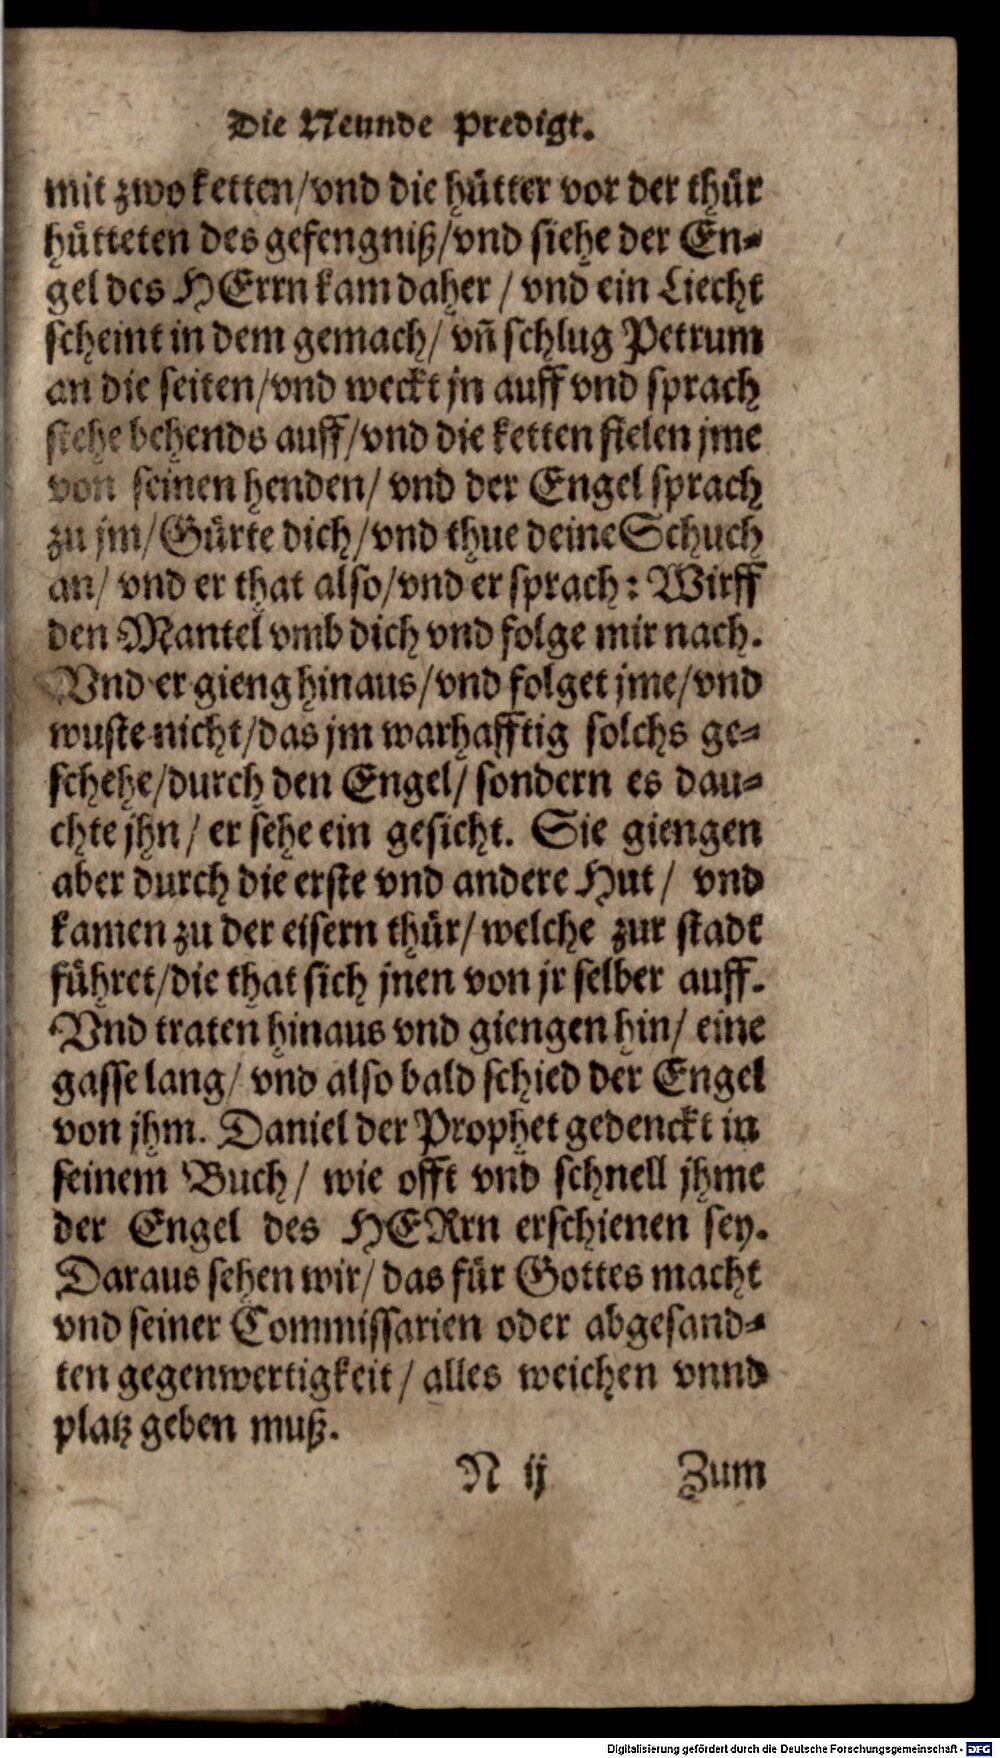 Die Neunde Predigt.
mit zwo ketten/vnd die hütter vor der thür
hütteten des gefengniß/vnd siehe der En-
gel des HErrn kam daher / vnd ein Liecht
scheint in dem gemach/ vñ schlug Petrum
an die seiten/vnd weckt jn auff vnd sprach
stehe behends auff/vnd die ketten fielen jme
von seinen henden/ vnd der Engel sprach
zu jm/Gürte dich/vnd thue deine Schuch
an/ vnd er that also/vnd er sprach: Wirff
den Mantel vmb dich vnd folge mir nach.
Vnd er gieng hinaus/vnd folget jme/vnd
wuste nicht/das jm warhafftig solchs ge-
schehe/durch den Engel/ sondern es dau-
chte jhn/ er sehe ein gesicht. Sie giengen
aber durch die erste vnd andere Hut/ vnd
kamen zu der eisern thür/welche zur stadt
führet/die that sich jnen von jr selber auff.
Vnd traten hinaus vnd giengen hin/ eine
gasse lang/ vnd also bald schied der Engel
von jhm. Daniel der Prophet gedenckt in
seinem Buch/ wie offt vnd schnell jhme
der Engel des HERrn erschienen sey.
Daraus sehen wir/ das für Gottes macht
vnd seiner Commissarien oder abgesand-
ten gegenwertigkeit/ alles weichen vnnd
platz geben muß.
N ij Zum
Digitalisierung gefördert durch die Deutsche Forschungsgemeinschaft - DFG